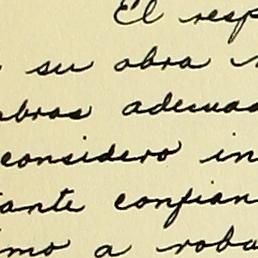 El resp
su obra
abras adecuad
considero in
tante confian
imo a roba